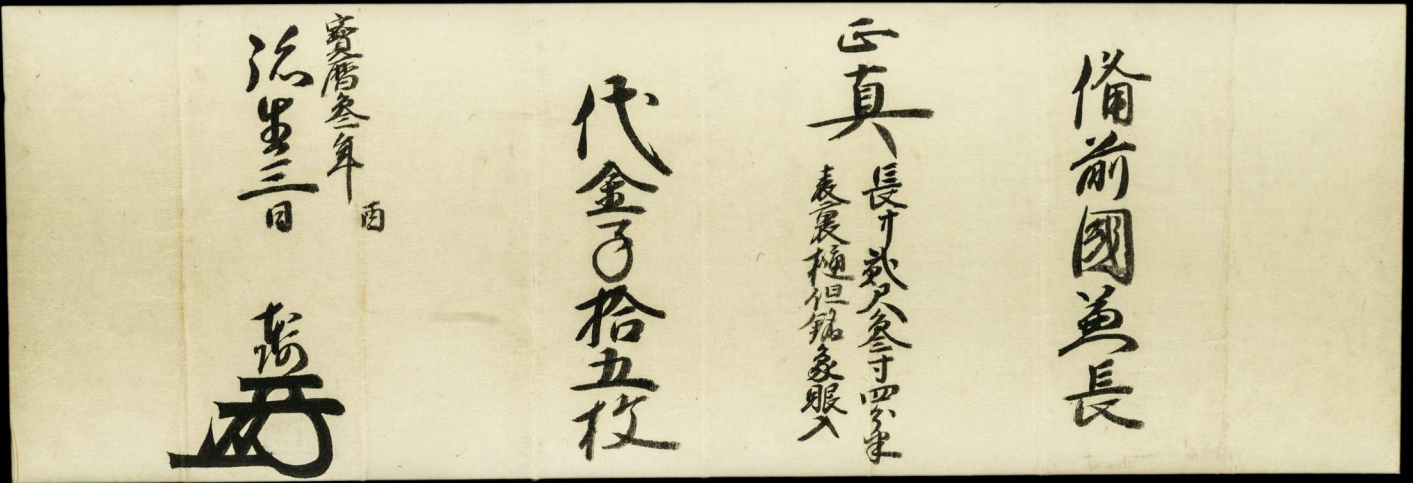 備前國兼長
正真
長サ貳尺叁寸四分半
表裏樋但銘象眼入
代金子拾五枚
寳暦叁年
酉
弥生三日
本阿